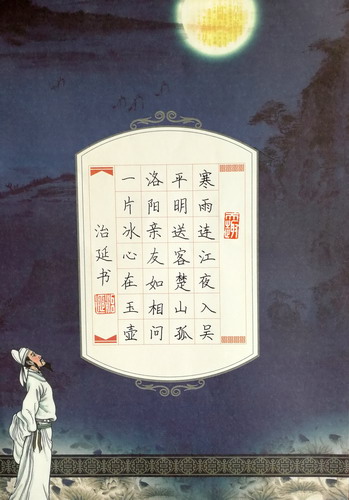 寒雨连江夜入吴
平明送客楚山孤
洛阳亲友如相问
一片冰心在玉壶
治延书